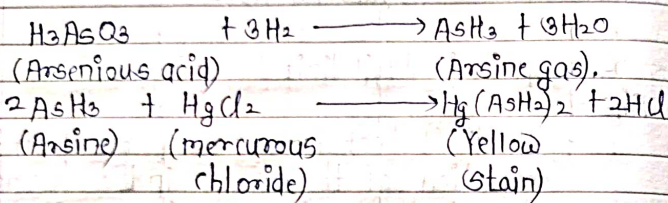 H3AsO3 + 3H2 ⟶ AsH3 + 3H2O
(Arsenious acid) (Arsine gas).
2AsH3 + HgCl2 ⟶ Hg(AsH2)2 + 2HCl
(Arsine) (mercurous (Yellow
chloride) stain)